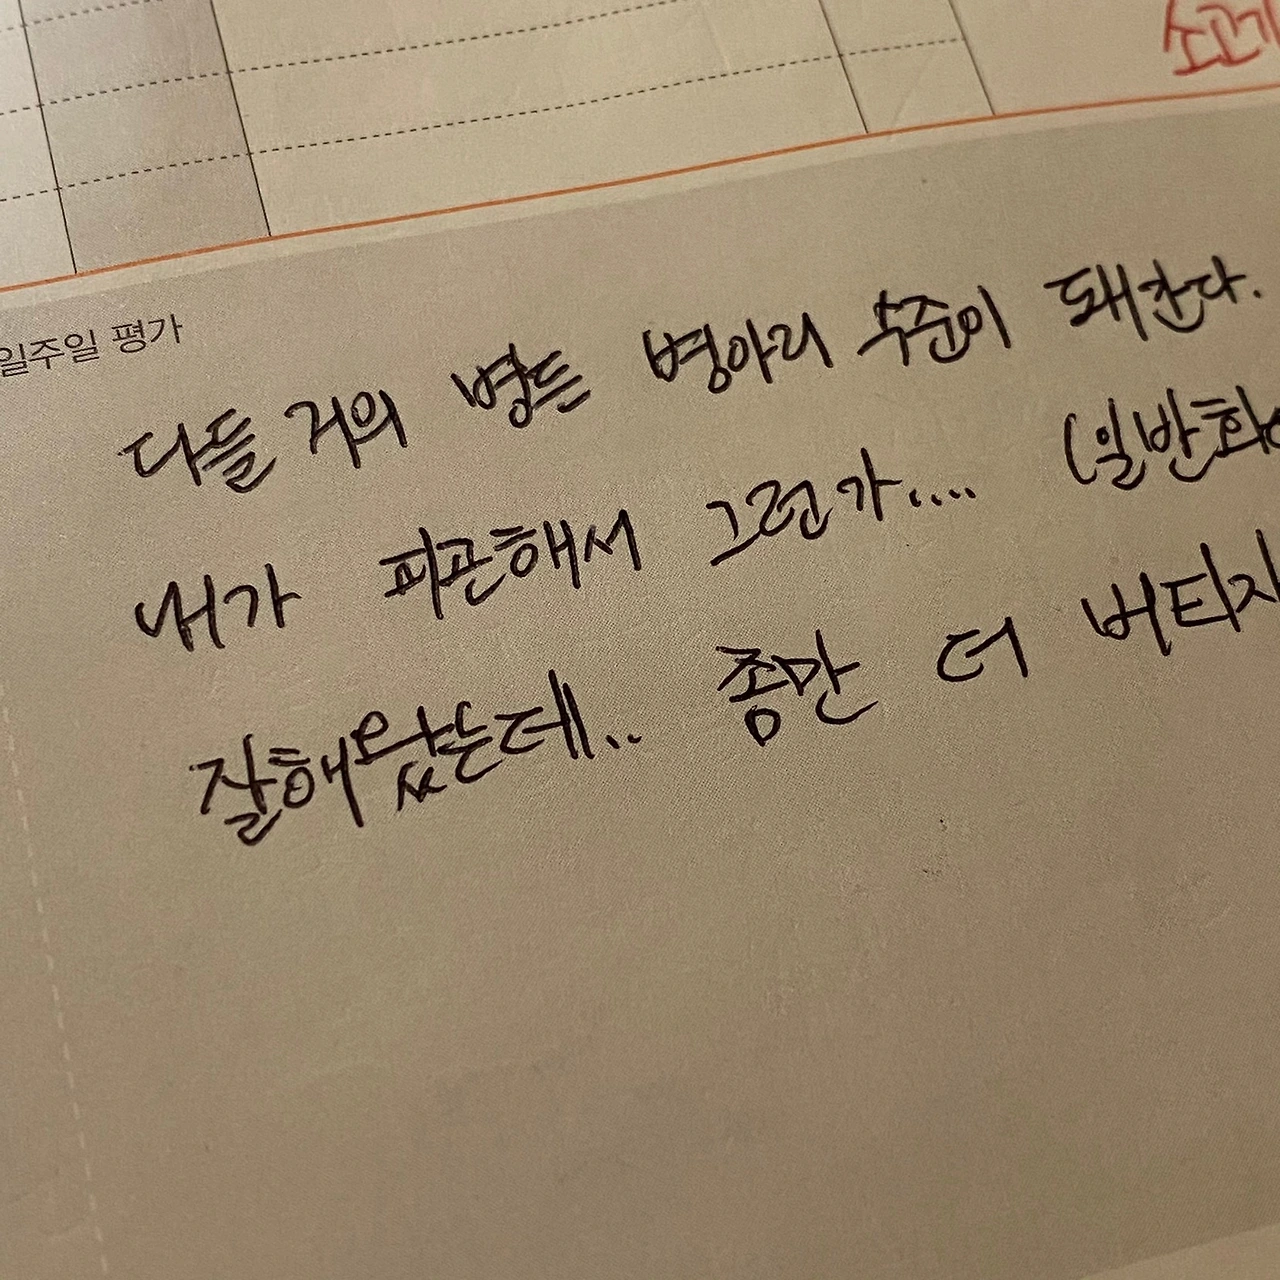 일주일 평가
다들 거의 병든 병아리 수준이 돼간다.
내가 피곤해서 그런가.... (일반화
잘해왔는데.. 좀만 더 버티자